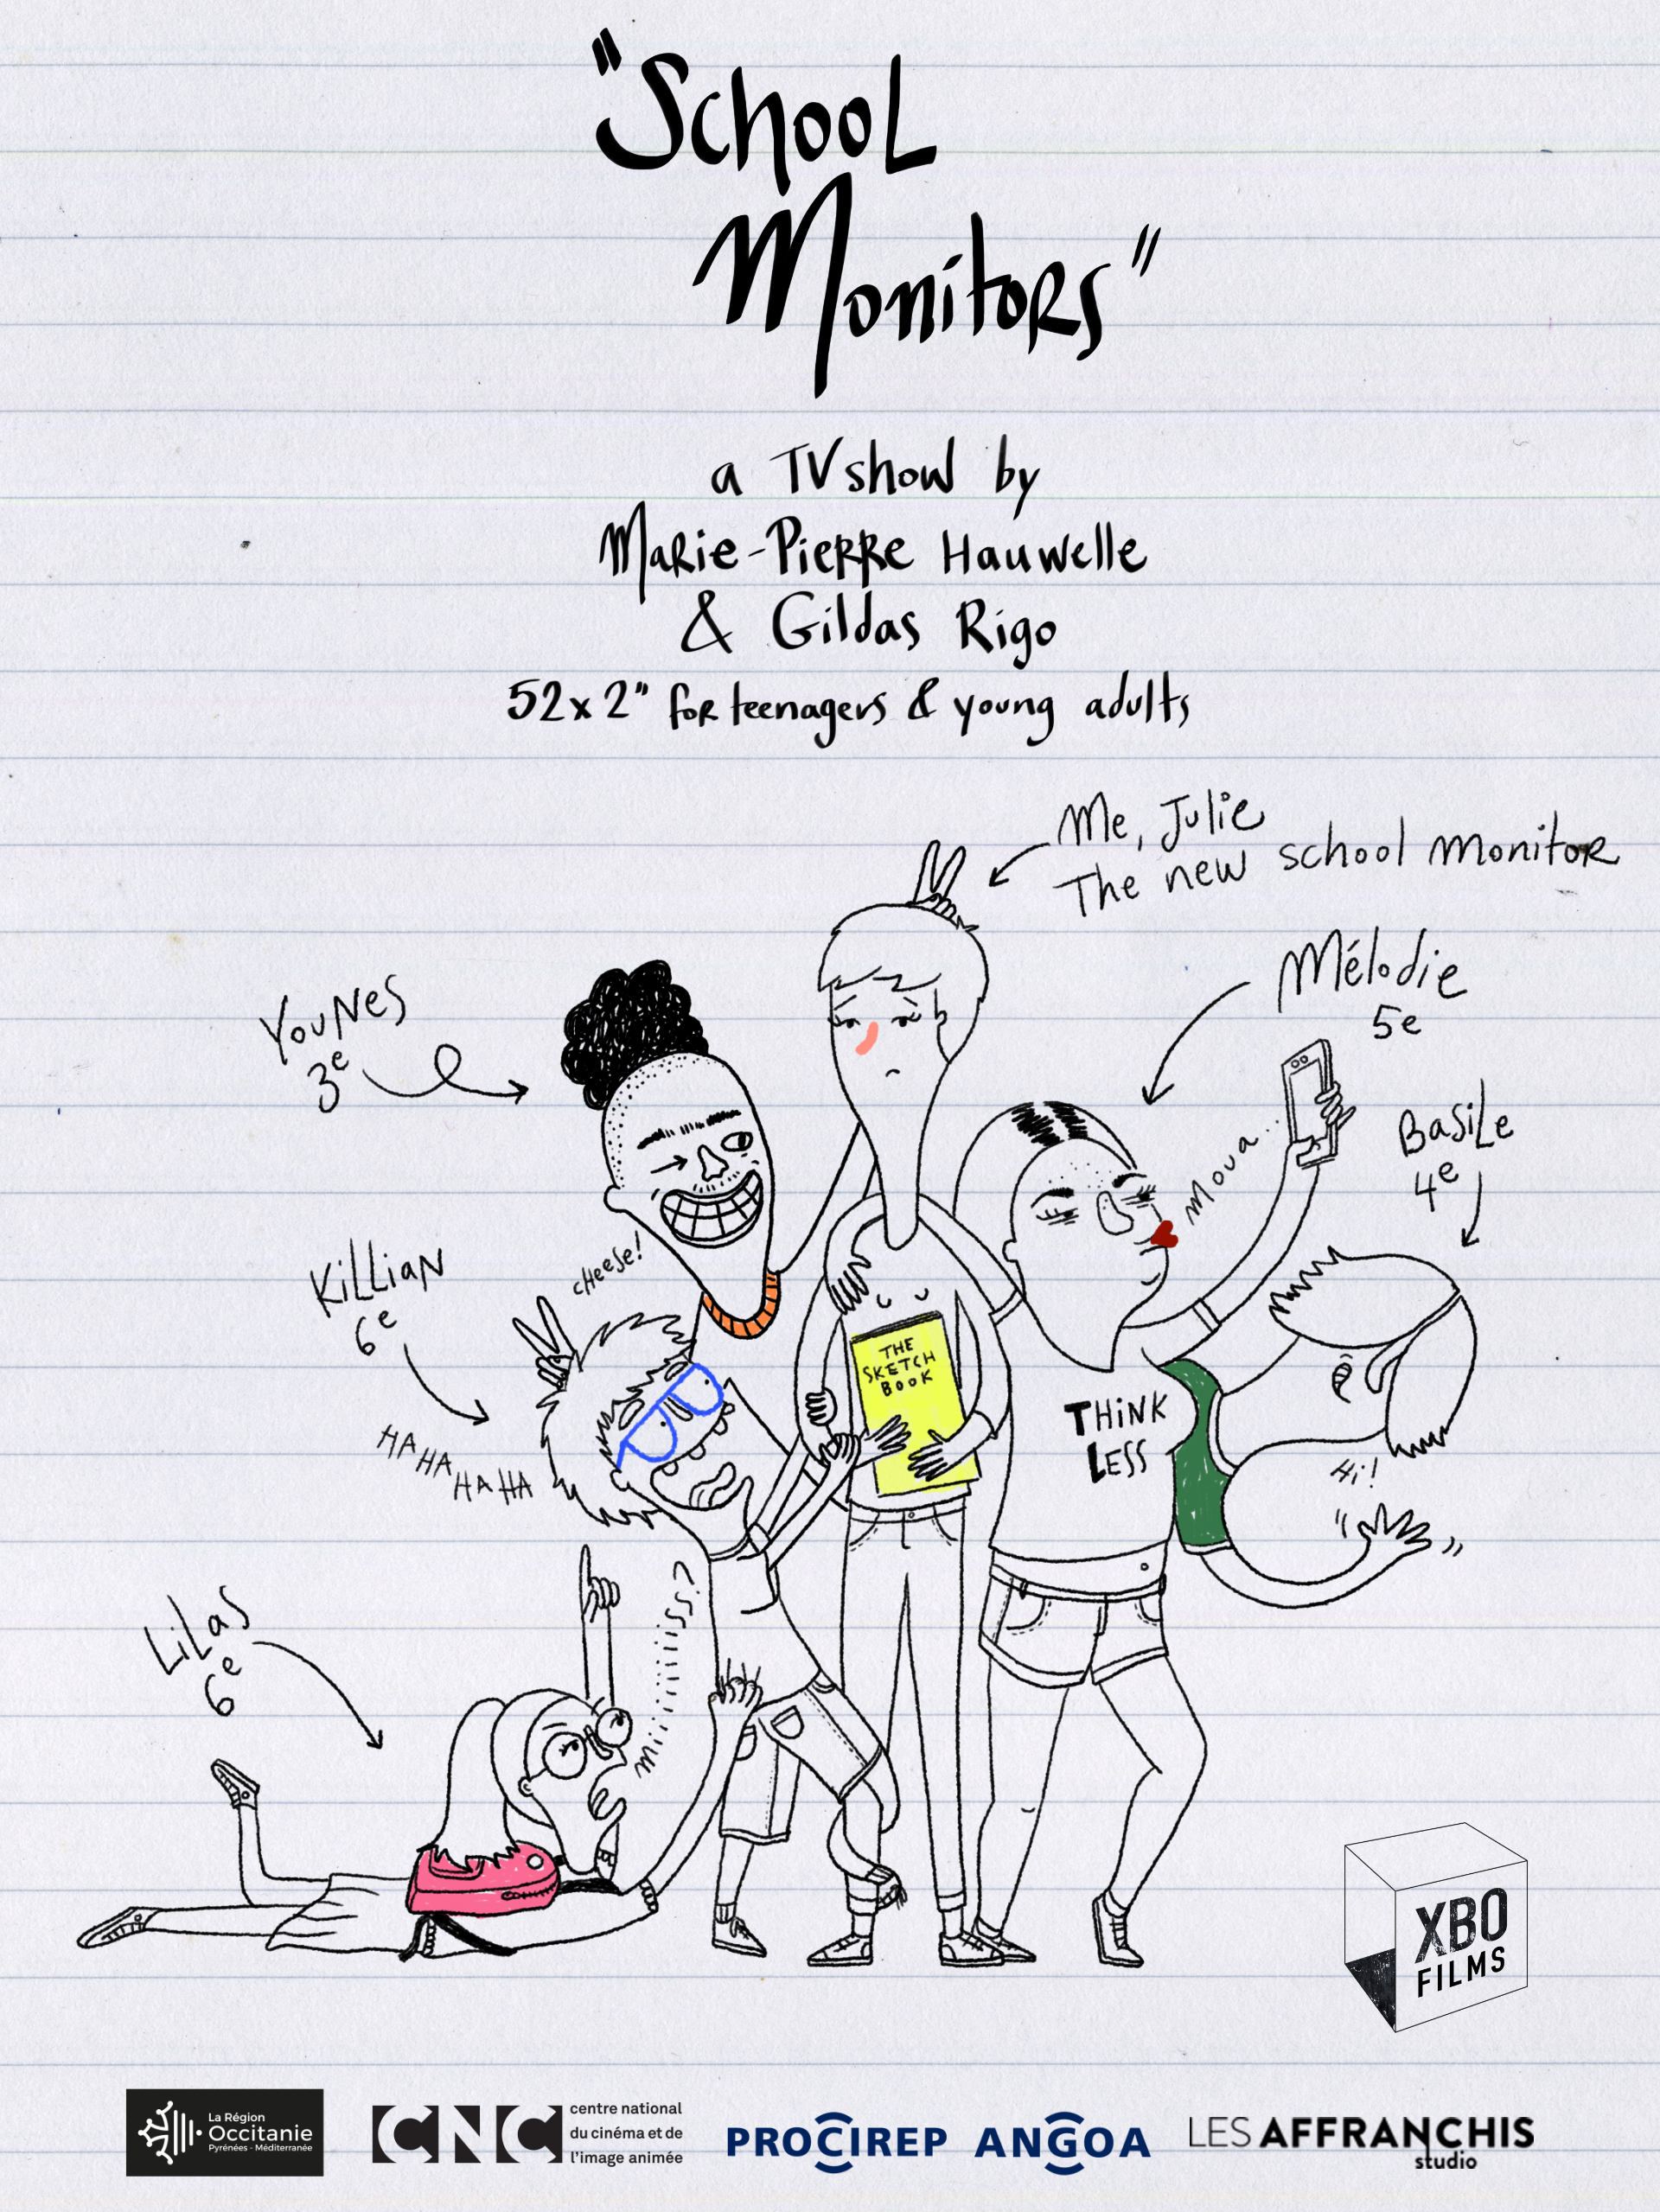 "School
Monitors"
a TV show by
Marie-Pierre Hauwelle
& Gildas Rigo
52x2" for teenagers & young adults
Me, Julie
The new school monitor
Mélodie
5e
YouNes
3e
Basile
4e
moua...
cheese!
Killian
6e
THE
SKETCH
BOOK
THINK
LESS
HA HA HA HA
Hi!
Lilas
6e
miiiiiiisss?
XBO
FILMS
La Région
Occitanie
Pyrénées - Méditerranée
CNC
centre national
du cinéma et de
l'image animée
PROCIREP ANGOA
LES AFFRANCHIS
studio